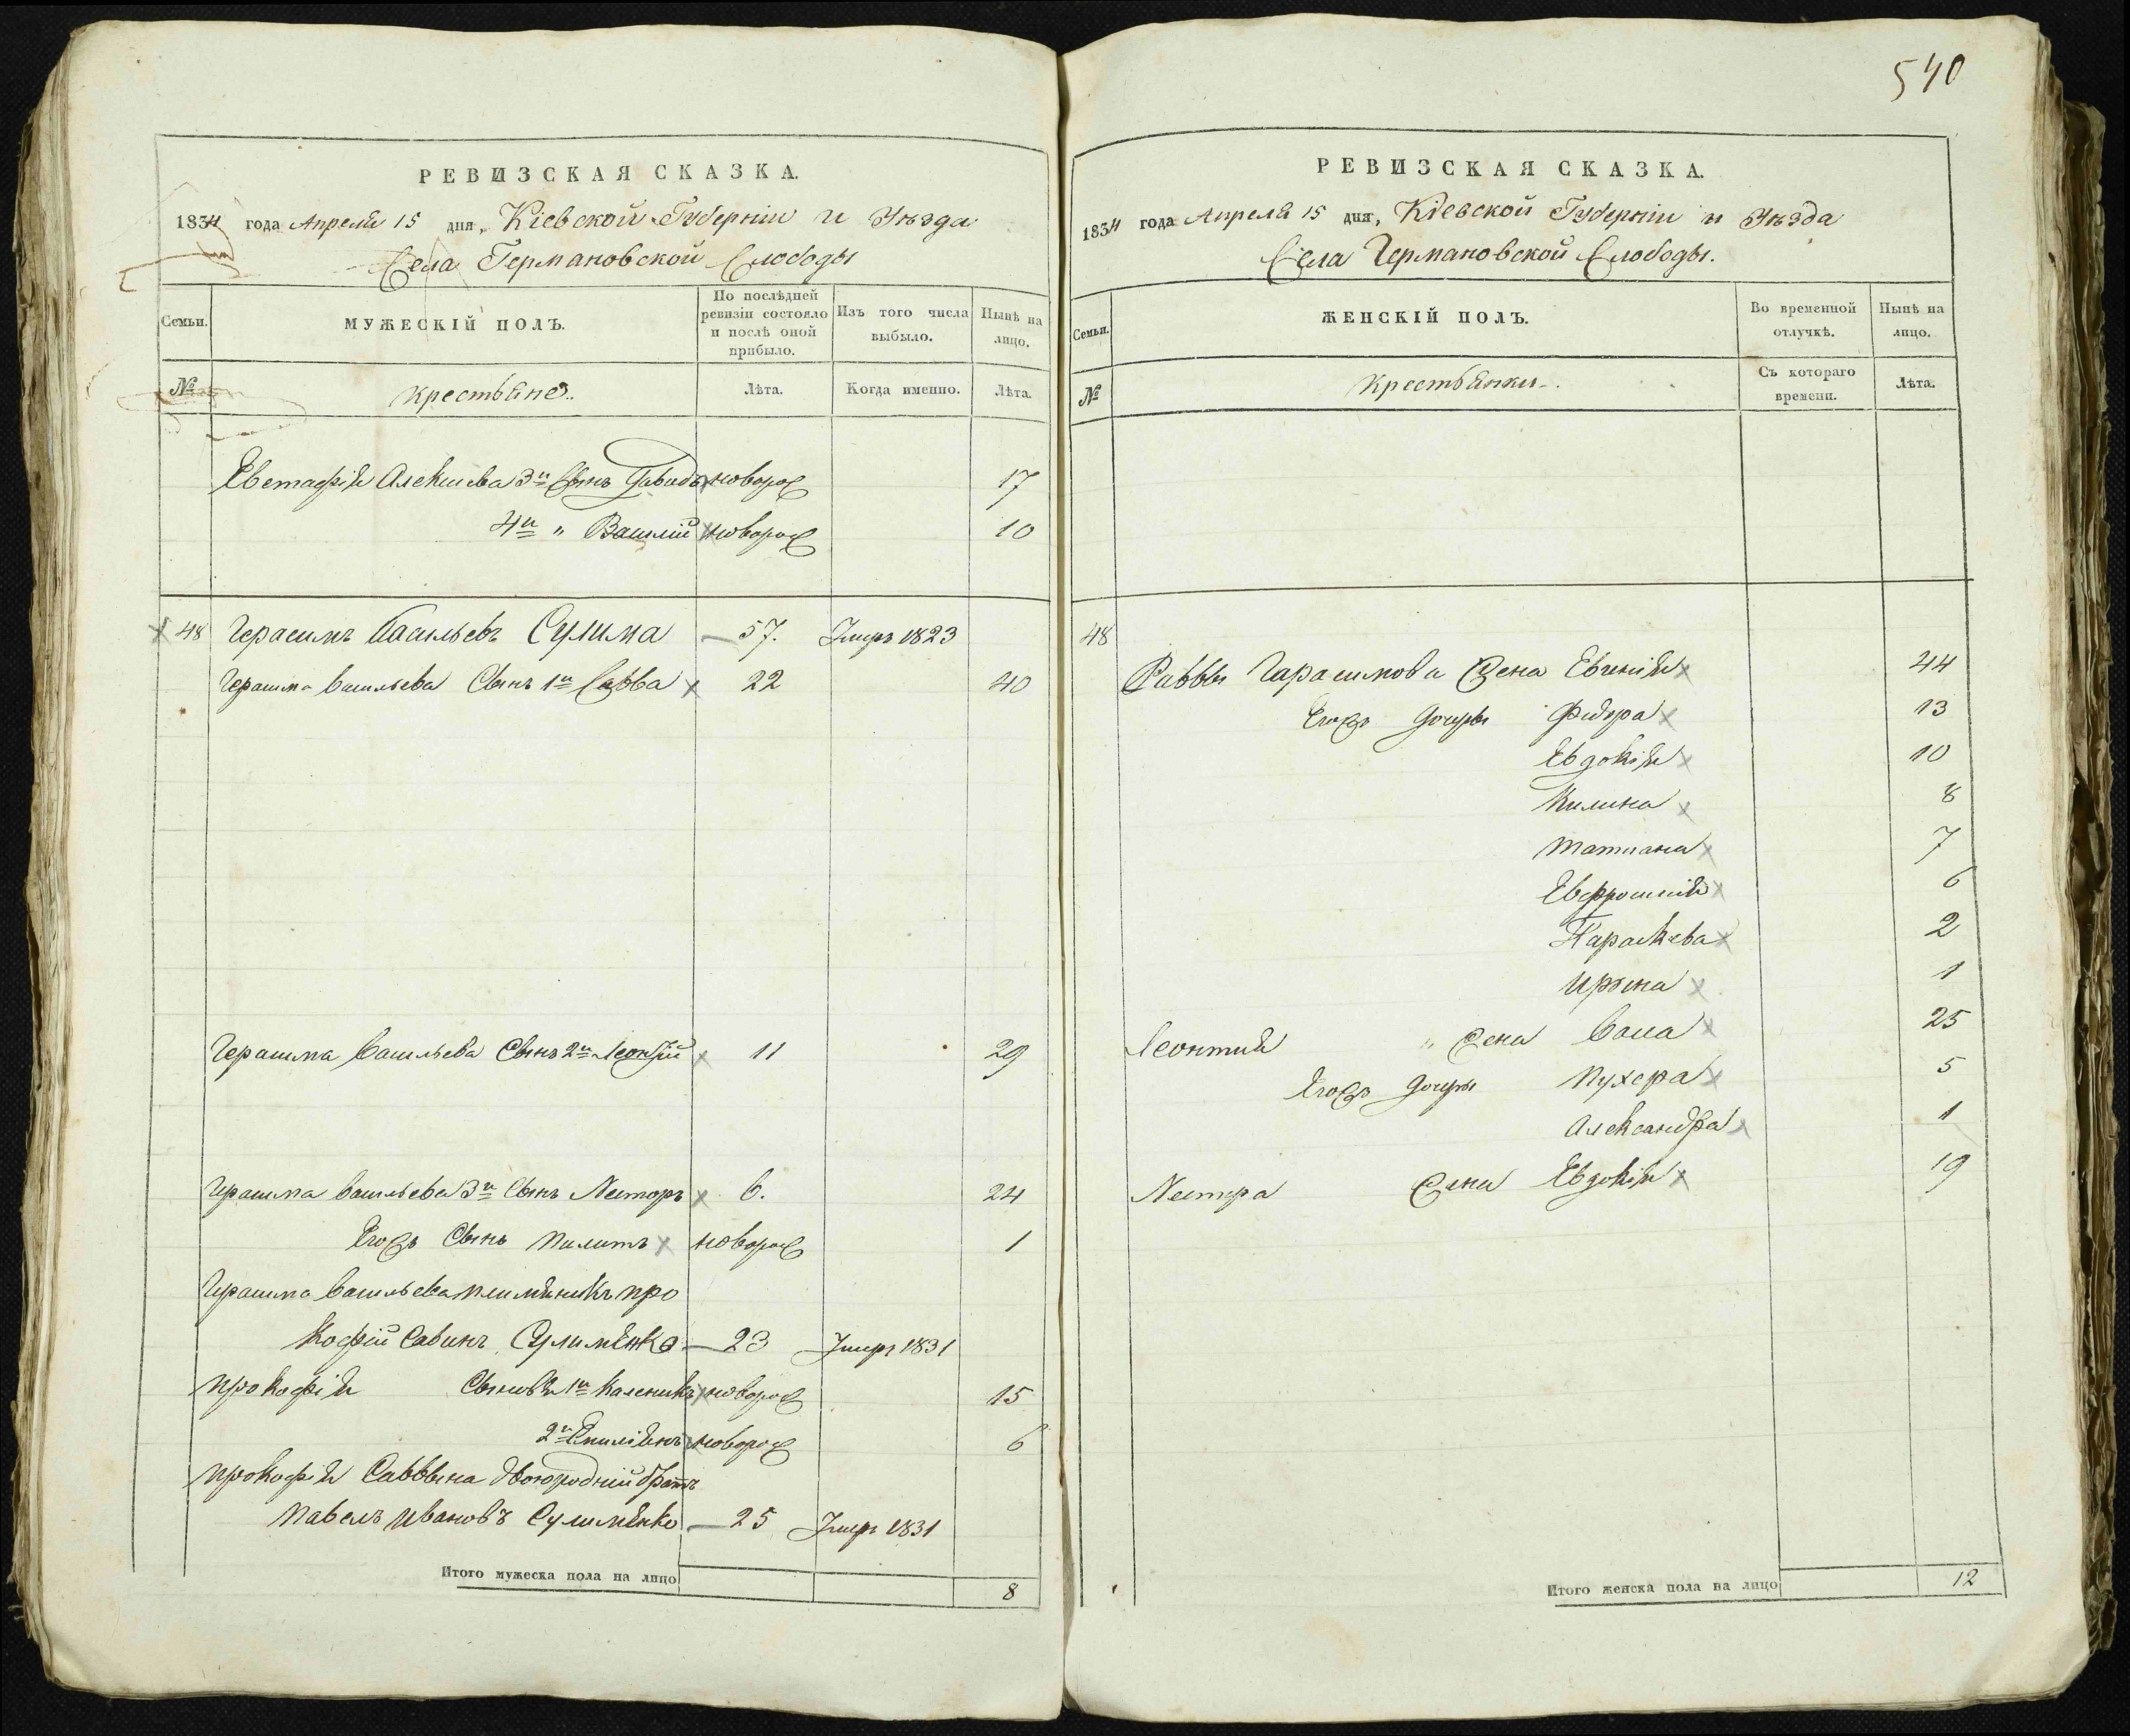 540
РЕВИЗСКАЯ СКАЗКА.
1834 года Апреля 15 дня, Кіевской Губерніи и Уѣзда
Села Германовской Слободы
Семьи. МУЖЕСКІЙ ПОЛЪ. По послѣдней ревизіи состояло и послѣ оной прибыло. Изъ того числа выбыло. Нынѣ на лицо.
№ Крестьяне. Лѣта. Когда именно. Лѣта.
Евстафія Алексиева 3й Сынъ Давидъ новорож 17
4й " Василій новорож 10
48 Герасимъ Васильевъ Сулима 57. Умръ 1823
Герасима Васильева Сынъ 1й Савва 22 40
Герасима Васильева Сынъ 2й Леонтій 11 29
Герасима Васильева 3й Сынъ Несторъ 6. 24
Егожъ Сынъ Пилипъ новорож 1
Герасима Васильева племяникъ Про
кофій Савинъ Сулименко 23 Умръ 1831
Прокофія Сыновья 1й Каленикъ новорож 15
2й Емиліянъ новорож 6
Прокофія Саввина двоюродній братъ
Павелъ Ивановъ Сулименко 25 Умръ 1831
Итого мужеска пола на лицо 8
РЕВИЗСКАЯ СКАЗКА.
1834 года Апреля 15 дня, Кіевской Губерніи и Уѣзда
Села Германовской Слободы.
Семьи. ЖЕНСКІЙ ПОЛЪ. Во временной отлучкѣ. Нынѣ на лицо.
№ Крестьянки. Съ котораго времени. Лѣта.
48
Саввы Гарасимова Жена Евгенія 44
Егожъ Дочеры Федора 13
Евдокія 10
Килина 8
Татиана 7
Евфросинія 6
Параскева 2
Ирына 1
Леонтия " Жена Васса 25
Егожъ Дочеры Пухера 5
Александра 1
Нестера Жена Евдокія 19
Итого женска пола на лицо 12